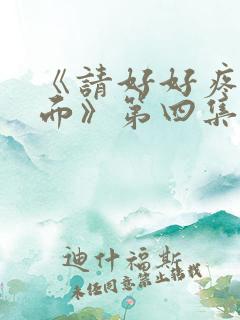 《請好好疼
而》第四集
迪什福斯
未經同意禁止轉載